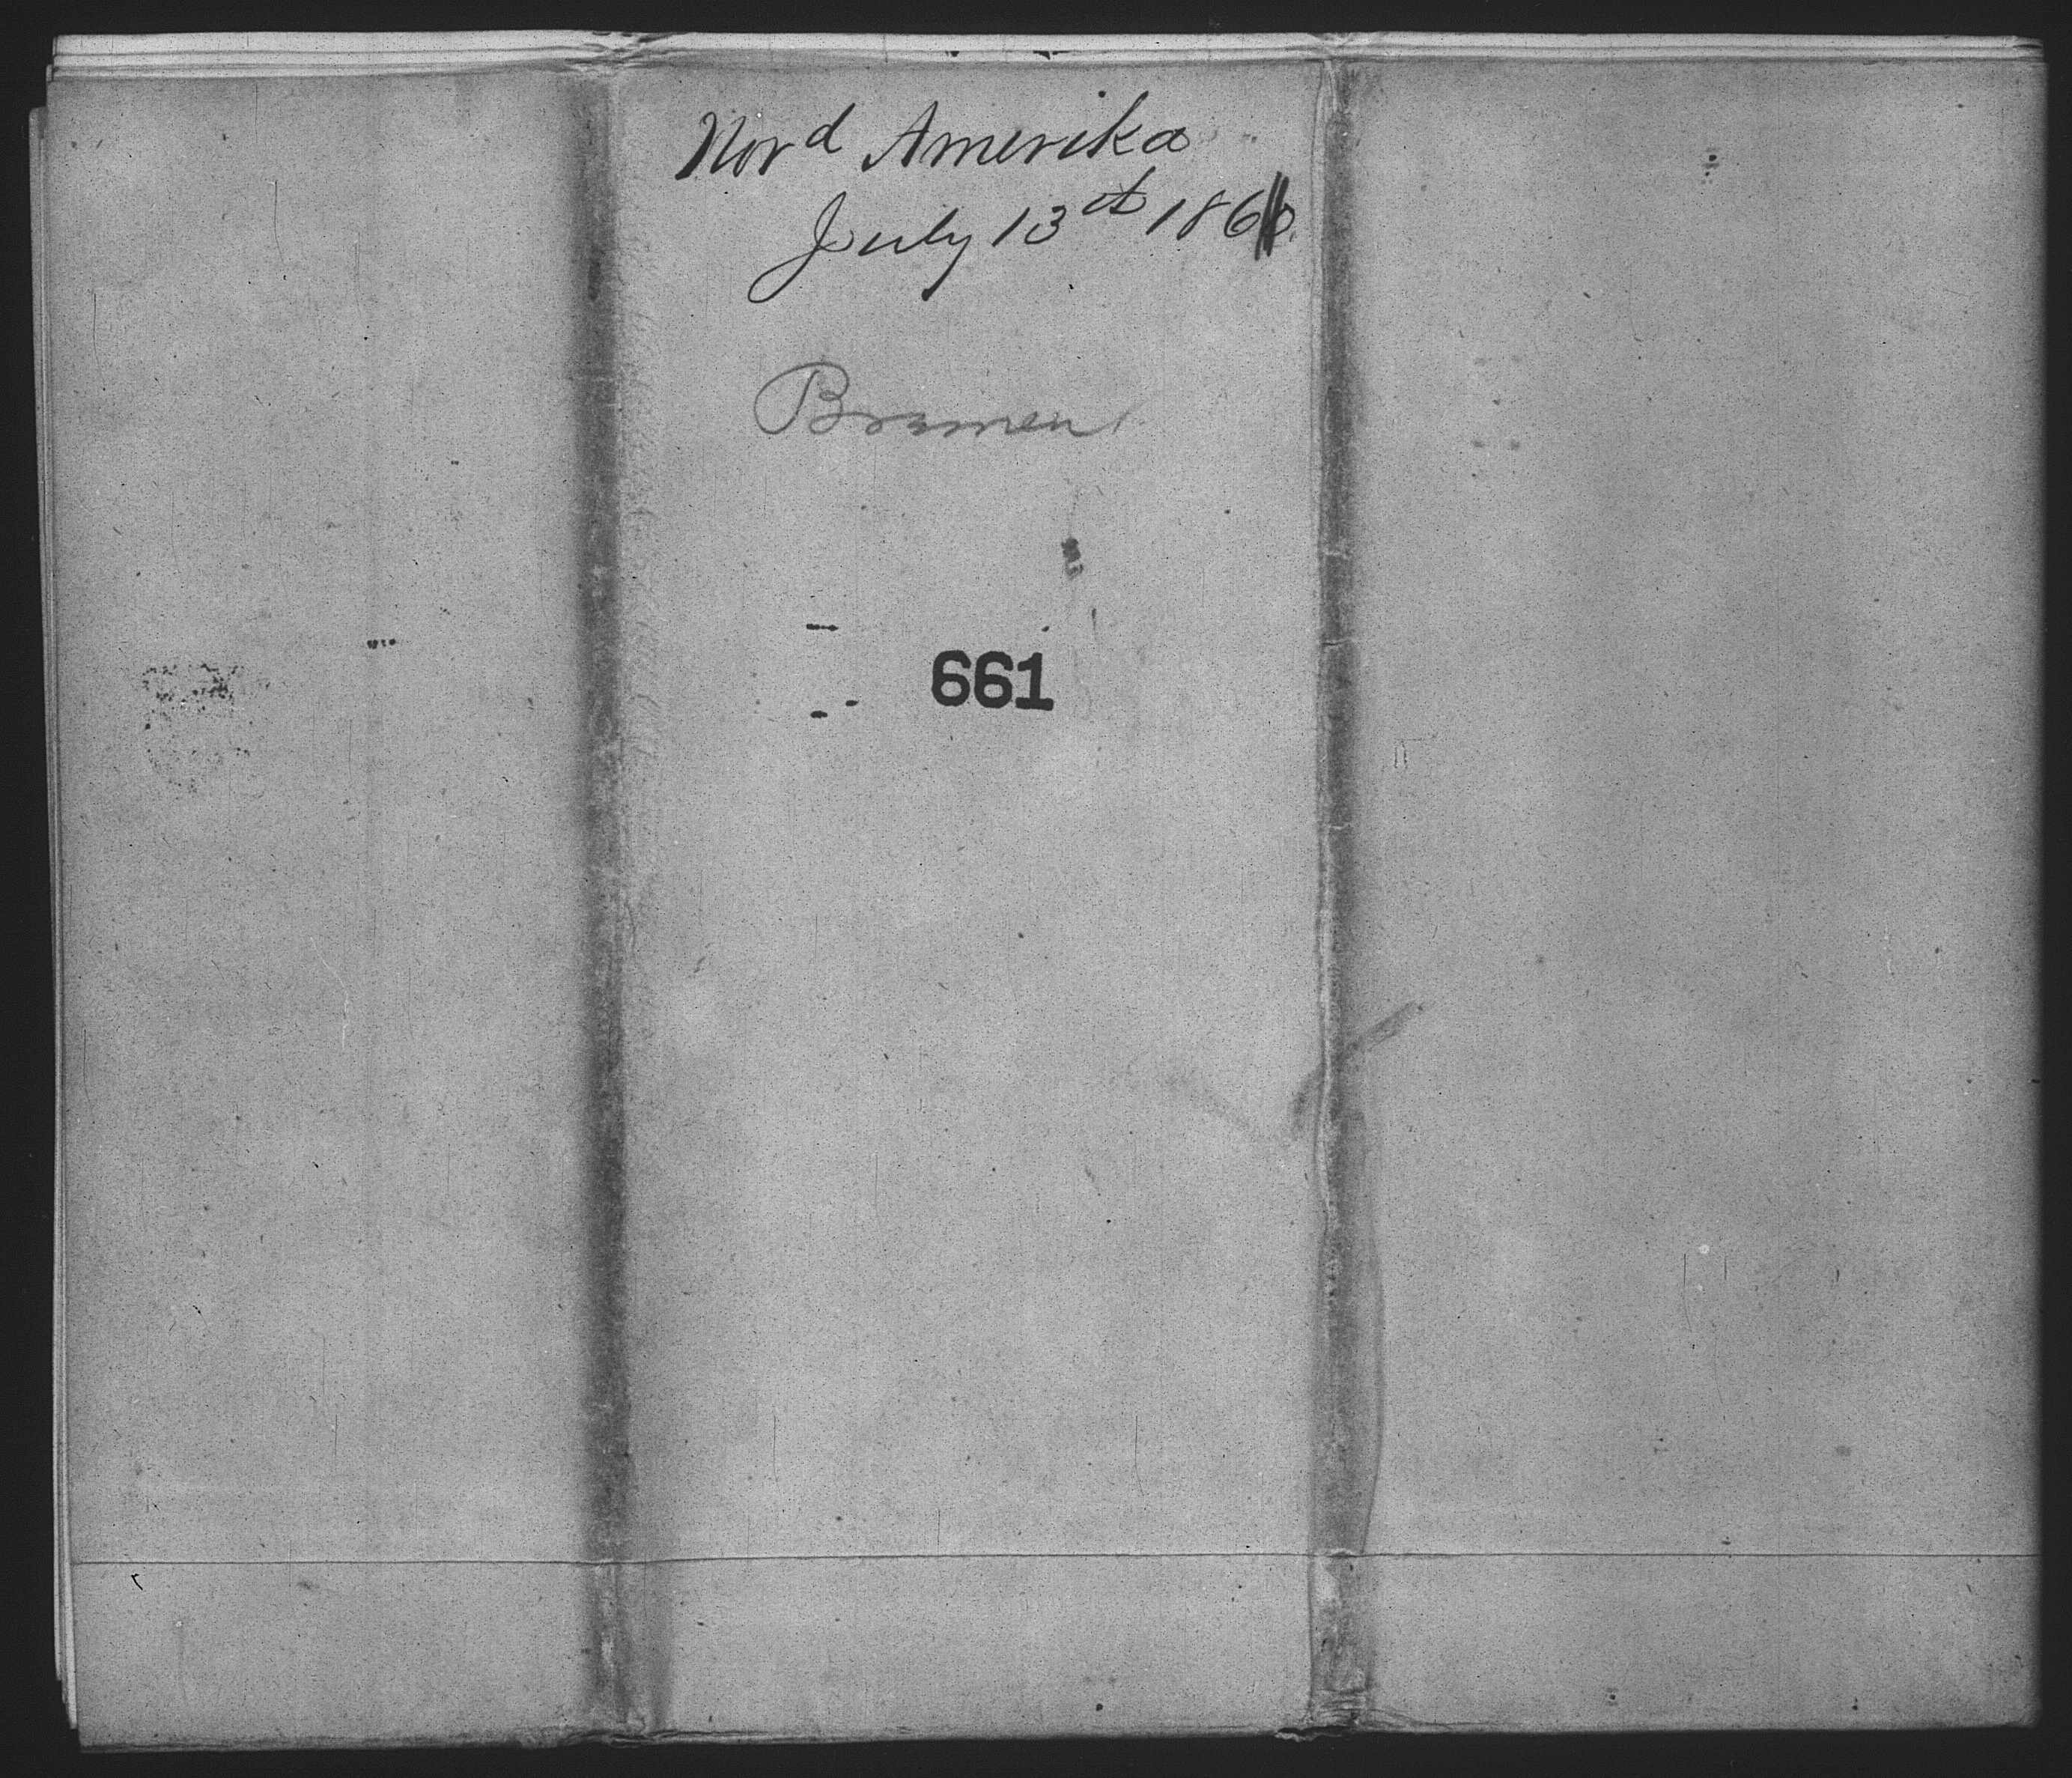 Nord Amerika
July 13th 186
Bremen
661